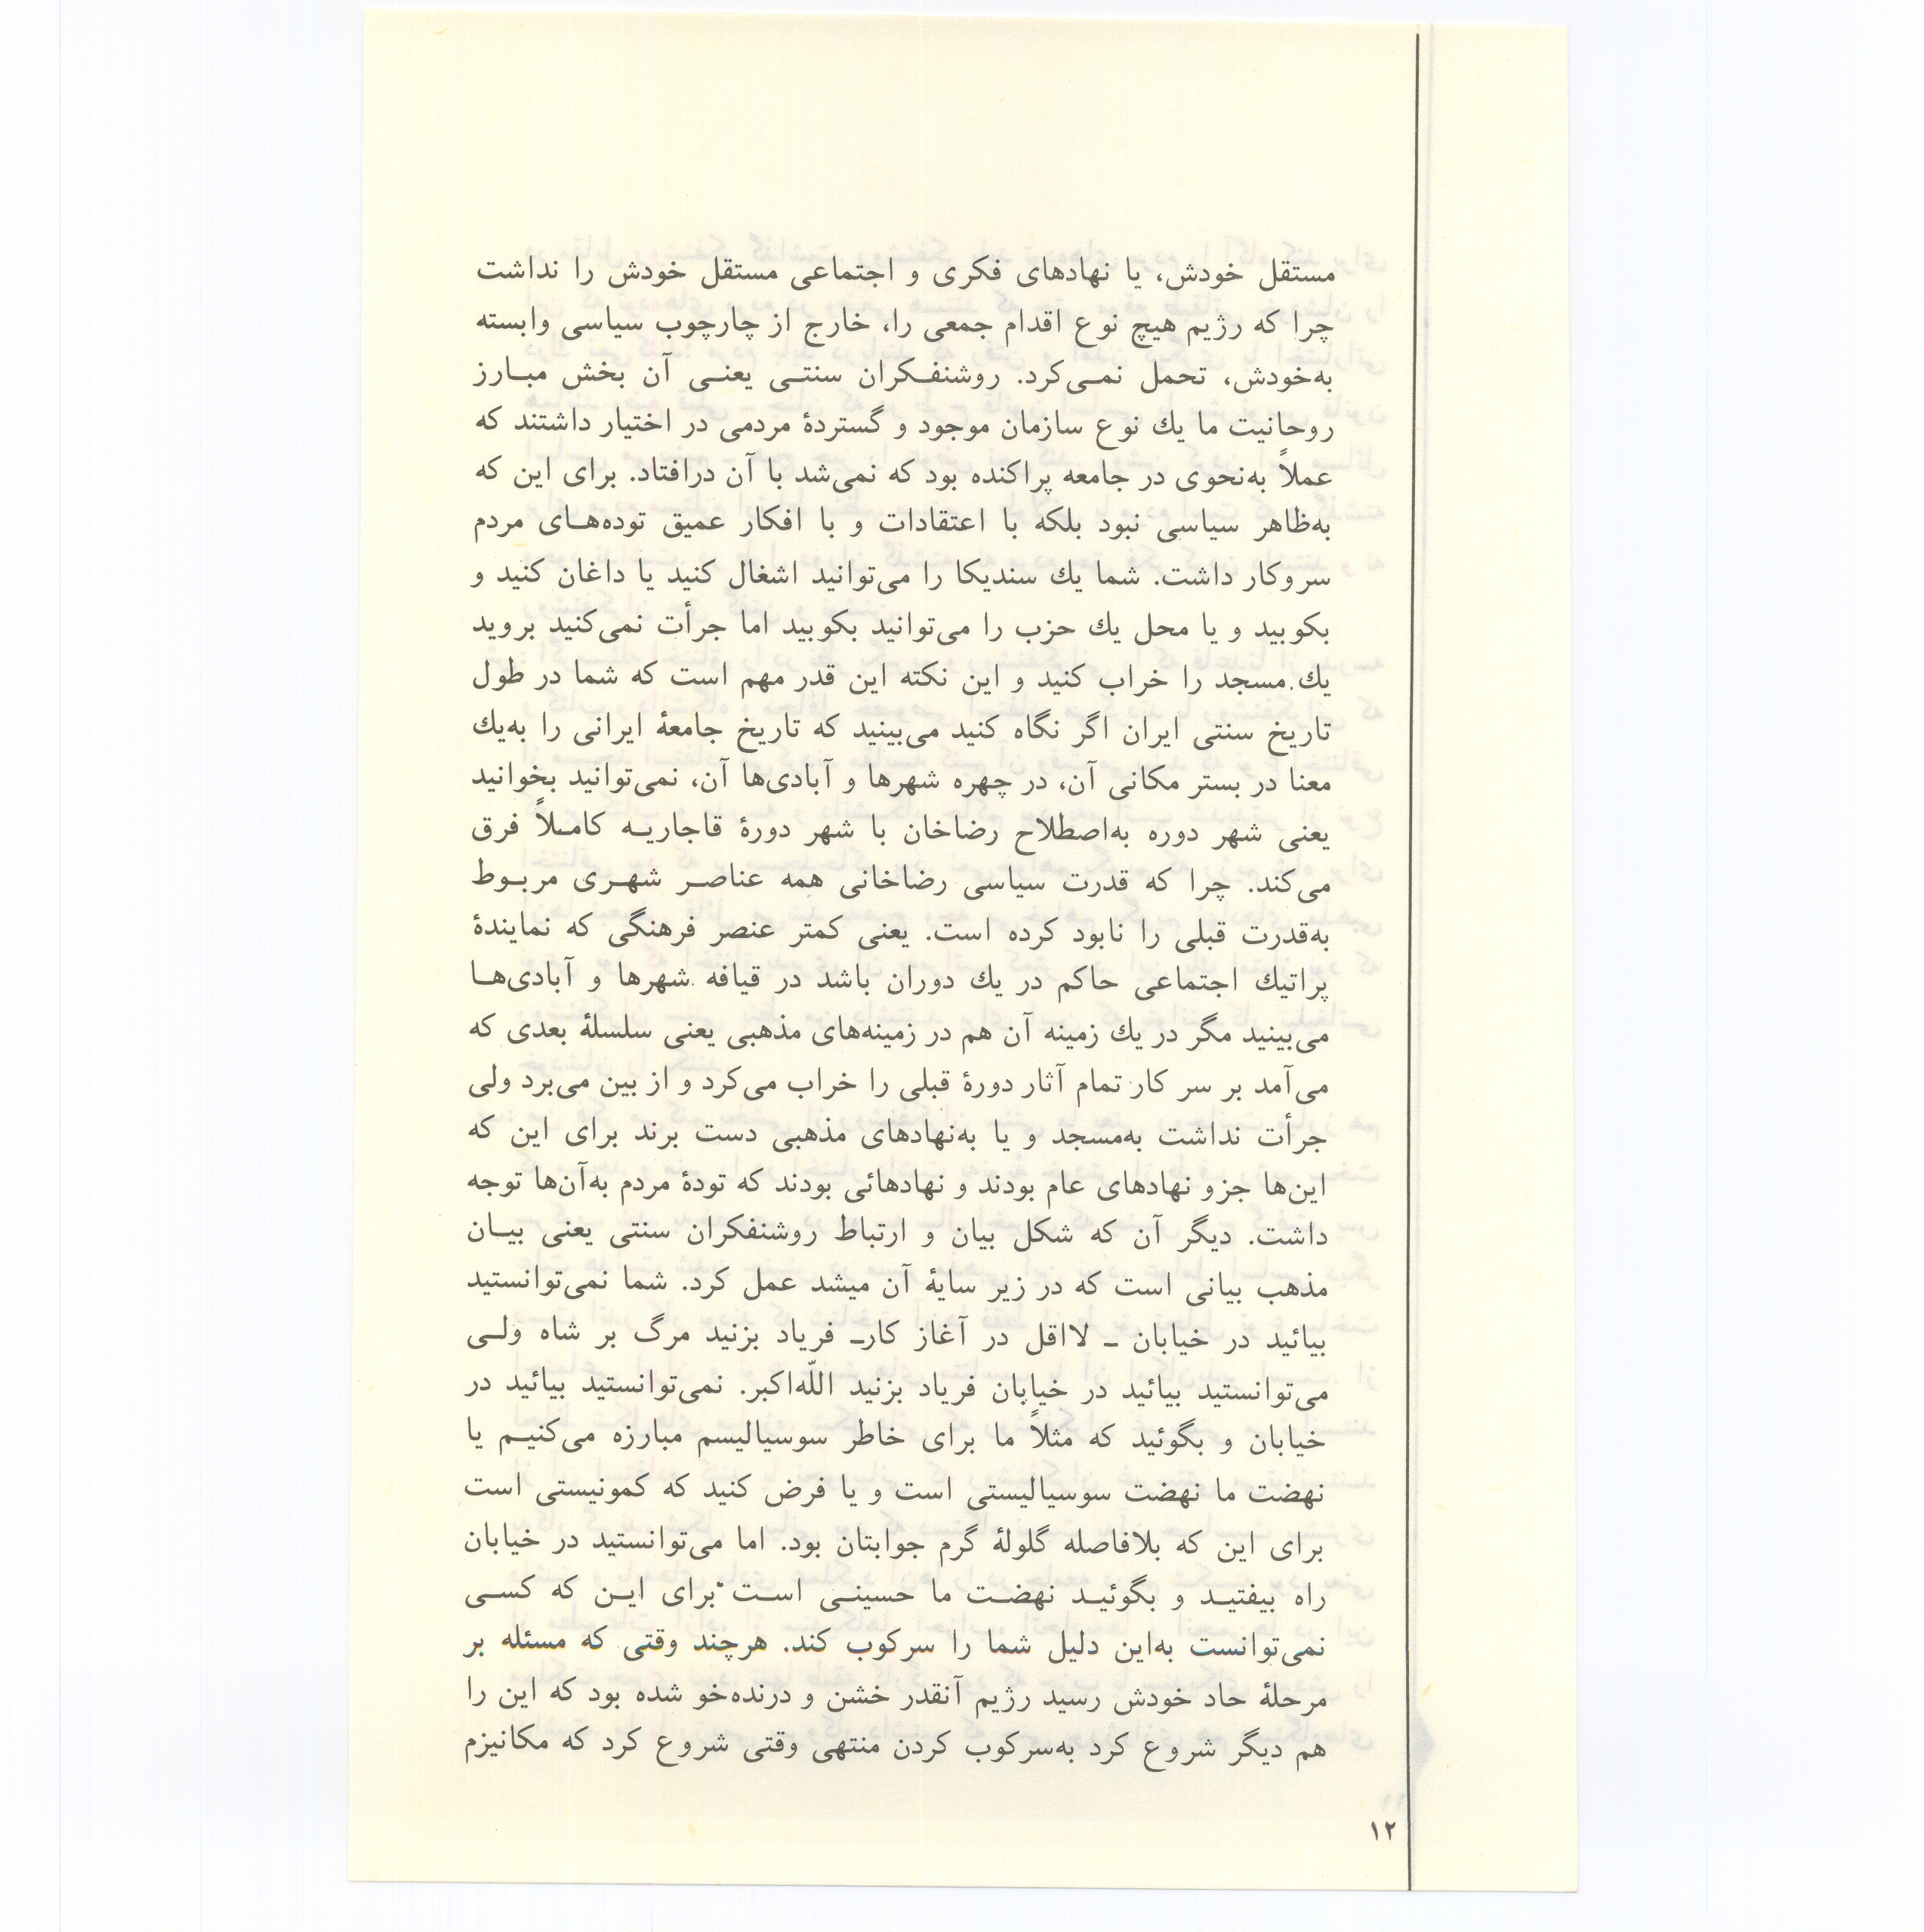 مستقل خودش، یا نهادهای فکری و اجتماعی مستقل خودش را نداشت
چرا که رژیم هیچ نوع اقدام جمعی را، خارج از چارچوب سیاسی وابسته
به‌خودش، تحمل نمـی‌کرد. روشنفـکران سنتـی یعنـی آن بخش مبـارز
روحانیت ما یك نوع سازمان موجود و گستردهٔ مردمی در اختیار داشتند که
عملاً به‌نحوی در جامعه پراکنده بود که نمی‌شد با آن درافتاد. برای این که
به‌ظاهر سیاسی نبود بلکه با اعتقادات و با افکار عمیق توده‌هـای مردم
سروکار داشت. شما یك سندیکا را می‌توانید اشغال کنید یا داغان کنید و
بکوبید و یا محل یك حزب را می‌توانید بکوبید اما جرأت نمی‌کنید بروید
یك مسجد را خراب کنید و این نکته این قدر مهم است که شما در طول
تاریخ سنتی ایران اگر نگاه کنید می‌بینید که تاریخ جامعهٔ ایرانی را به‌یك
معنا در بستر مکانی آن، در چهره شهرها و آبادی‌ها آن، نمی‌توانید بخوانید
یعنی شهر دوره به‌اصطلاح رضاخان با شهر دورهٔ قاجاریـه کامـلاً فرق
می‌کند. چرا که قدرت سیاسی رضاخانی همه عناصـر شهـری مربـوط
به‌قدرت قبلی را نابود کرده است. یعنی کمتر عنصر فرهنگی که نمایندهٔ
پراتیك اجتماعی حاکم در یك دوران باشد در قیافه شهرها و آبادی‌هـا
می‌بینید مگر در یك زمینه آن هم در زمینه‌های مذهبی یعنی سلسلهٔ بعدی که
می‌آمد بر سر کار تمام آثار دورهٔ قبلی را خراب می‌کرد و از بین می‌برد ولی
جرأت نداشت به‌مسجد و یا به‌نهادهای مذهبی دست برند برای این که
این‌ها جزو نهادهای عام بودند و نهادهائی بودند که تودهٔ مردم به‌آن‌ها توجه
داشت. دیگر آن که شکل بیان و ارتباط روشنفکران سنتی یعنی بیـان
مذهب بیانی است که در زیر سایهٔ آن میشد عمل کرد. شما نمی‌توانستید
بیائید در خیابان ـ لااقل در آغاز کارـ فریاد بزنید مرگ بر شاه ولـی
می‌توانستید بیائید در خیابان فریاد بزنید اللّه‌اکبر. نمی‌توانستید بیائید در
خیابان و بگوئید که مثلاً ما برای خاطر سوسیالیسم مبارزه می‌کنیـم یا
نهضت ما نهضت سوسیالیستی است و یا فرض کنید که کمونیستی است
برای این که بلافاصله گلولهٔ گرم جوابتان بود. اما می‌توانستید در خیابان
راه بیفتیـد و بگوئیـد نهضـت ما حسینـی اسـت برای ایـن که کسـی
نمی‌توانست به‌این دلیل شما را سرکوب کند. هرچند وقتی که مسئله بر
مرحلهٔ حاد خودش رسید رژیم آنقدر خشن و درنده‌خو شده بود که این را
هم دیگر شروع کرد به‌سرکوب کردن منتهی وقتی شروع کرد که مکانیزم
۱۲